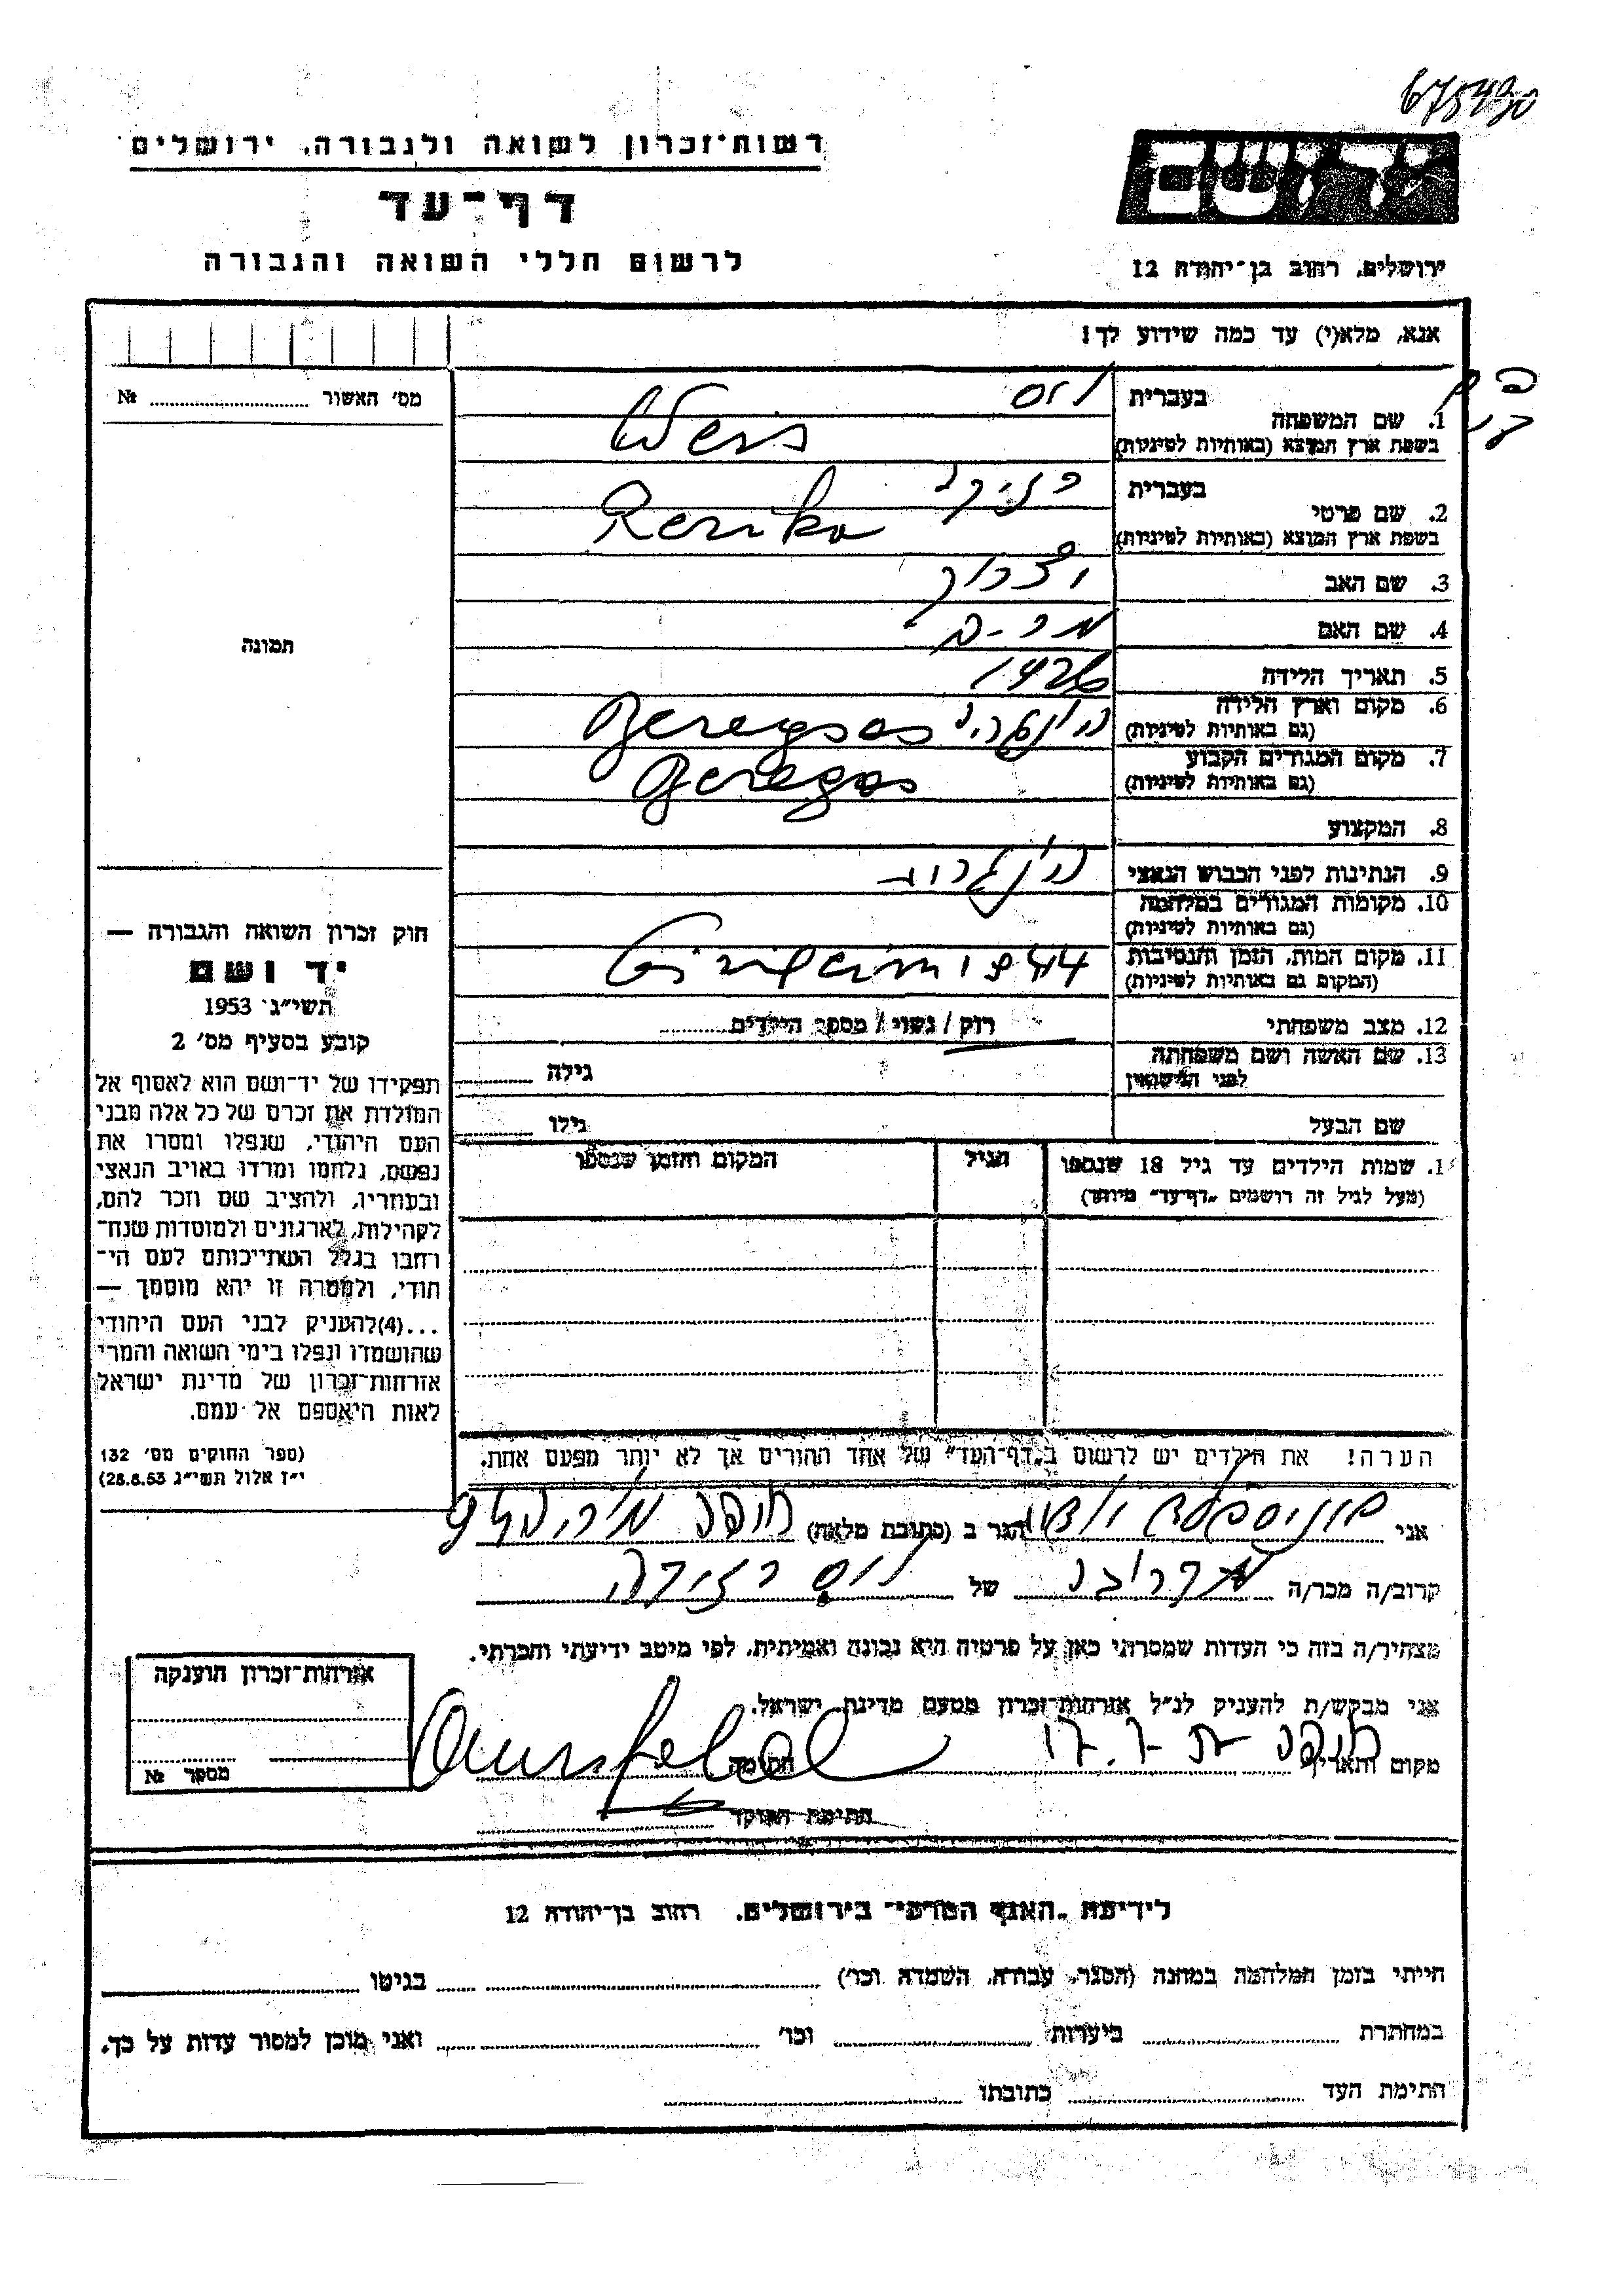 675490
רשות־זכרון לשואה ולגבורה, ירושלים
דף־עד
לרשום חללי השואה והגבורה
יד ושם
ירושלים, רחוב בן־יהודה 12
אנא, מלא(י) עד כמה שידוע לך!
מס׳ האשור № 
תמונה
1. שם המשפחה
בעברית ויס
בשפת ארץ המוצא (באותיות לטיניות) Weis
2. שם פרטי
בעברית
בשפת ארץ המוצא (באותיות לטיניות)
3. שם האב
4. שם האם מרים
5. תאריך הלידה 1926
6. מקום וארץ הלידה
(גם באותיות לטיניות)
7. מקום המגורים הקבוע
(גם באותיות לטיניות)
8. המקצוע
9. הנתינות לפני הכבוש הנאצי
10. מקומות המגורים במלחמה
(גם באותיות לטיניות)
11. מקום המות, הזמן והנסיבות 1944
(המקום גם באותיות לטיניות)
12. מצב משפחתי רוק / נשוי / מספר הילדים
13. שם האשה ושם משפחתה
לפני הנישואין
גילה
שם הבעל גילו
שמות הילדים עד גיל 18 שנספו הגיל המקום והזמן שנספו
(מעל לגיל זה רושמים „דף־עד” מיוחד)
הערה! את הילדים יש לרשום ב„דף־העד” של אחד ההורים אך לא יותר מפעם אחת.
חוק זכרון השואה והגבורה —
יד ושם
תשי״ג 1953
קובע בסעיף מס׳ 2
תפקידו של יד־ושם הוא לאסוף אל
המולדת את זכרם של כל אלה מבני
העם היהודי, שנפלו ומסרו את
נפשם, נלחמו ומרדו באויב הנאצי
ובעוזריו, ולהציב שם וזכר להם,
לקהילות, לארגונים ולמוסדות שנח־
רחבו בגלל השתייכותם לעם הי־
הודי, ולמטרה זו יהא מוסמך —
...(4)להעניק לבני העם היהודי
שהושמדו ונפלו בימי השואה והמרי
אזרחות־זכרון של מדינת ישראל
לאות היאספם אל עמם.
(ספר החוקים מס׳ 132
י״ז אלול תשי״ג 28.8.53)
אני הגר ב (כתובת מלאה) חיפה
קרוב/ה מכר/ה של ויס
מצהיר/ה בזה כי העדות שמסרתי כאן על פרטיה היא נכונה ואמיתית, לפי מיטב ידיעתי והכרתי.
אני מבקש/ת להעניק לנ״ל אזרחות־זכרון מטעם מדינת ישראל.
מקום ותאריך חיפה חתימה
חתימת הפוקד
אזרחות־זכרון הוענקה
מספר №
לידיעת „האגף המדעי” בירושלים, רחוב בן־יהודה 12
הייתי בזמן המלחמה במחנה (הסגר, עבודה, השמדה וכו׳) בגיטו
במחתרת ביערות וכו׳ ואני מוכן למסור עדות על כך.
חתימת העד כתובתו